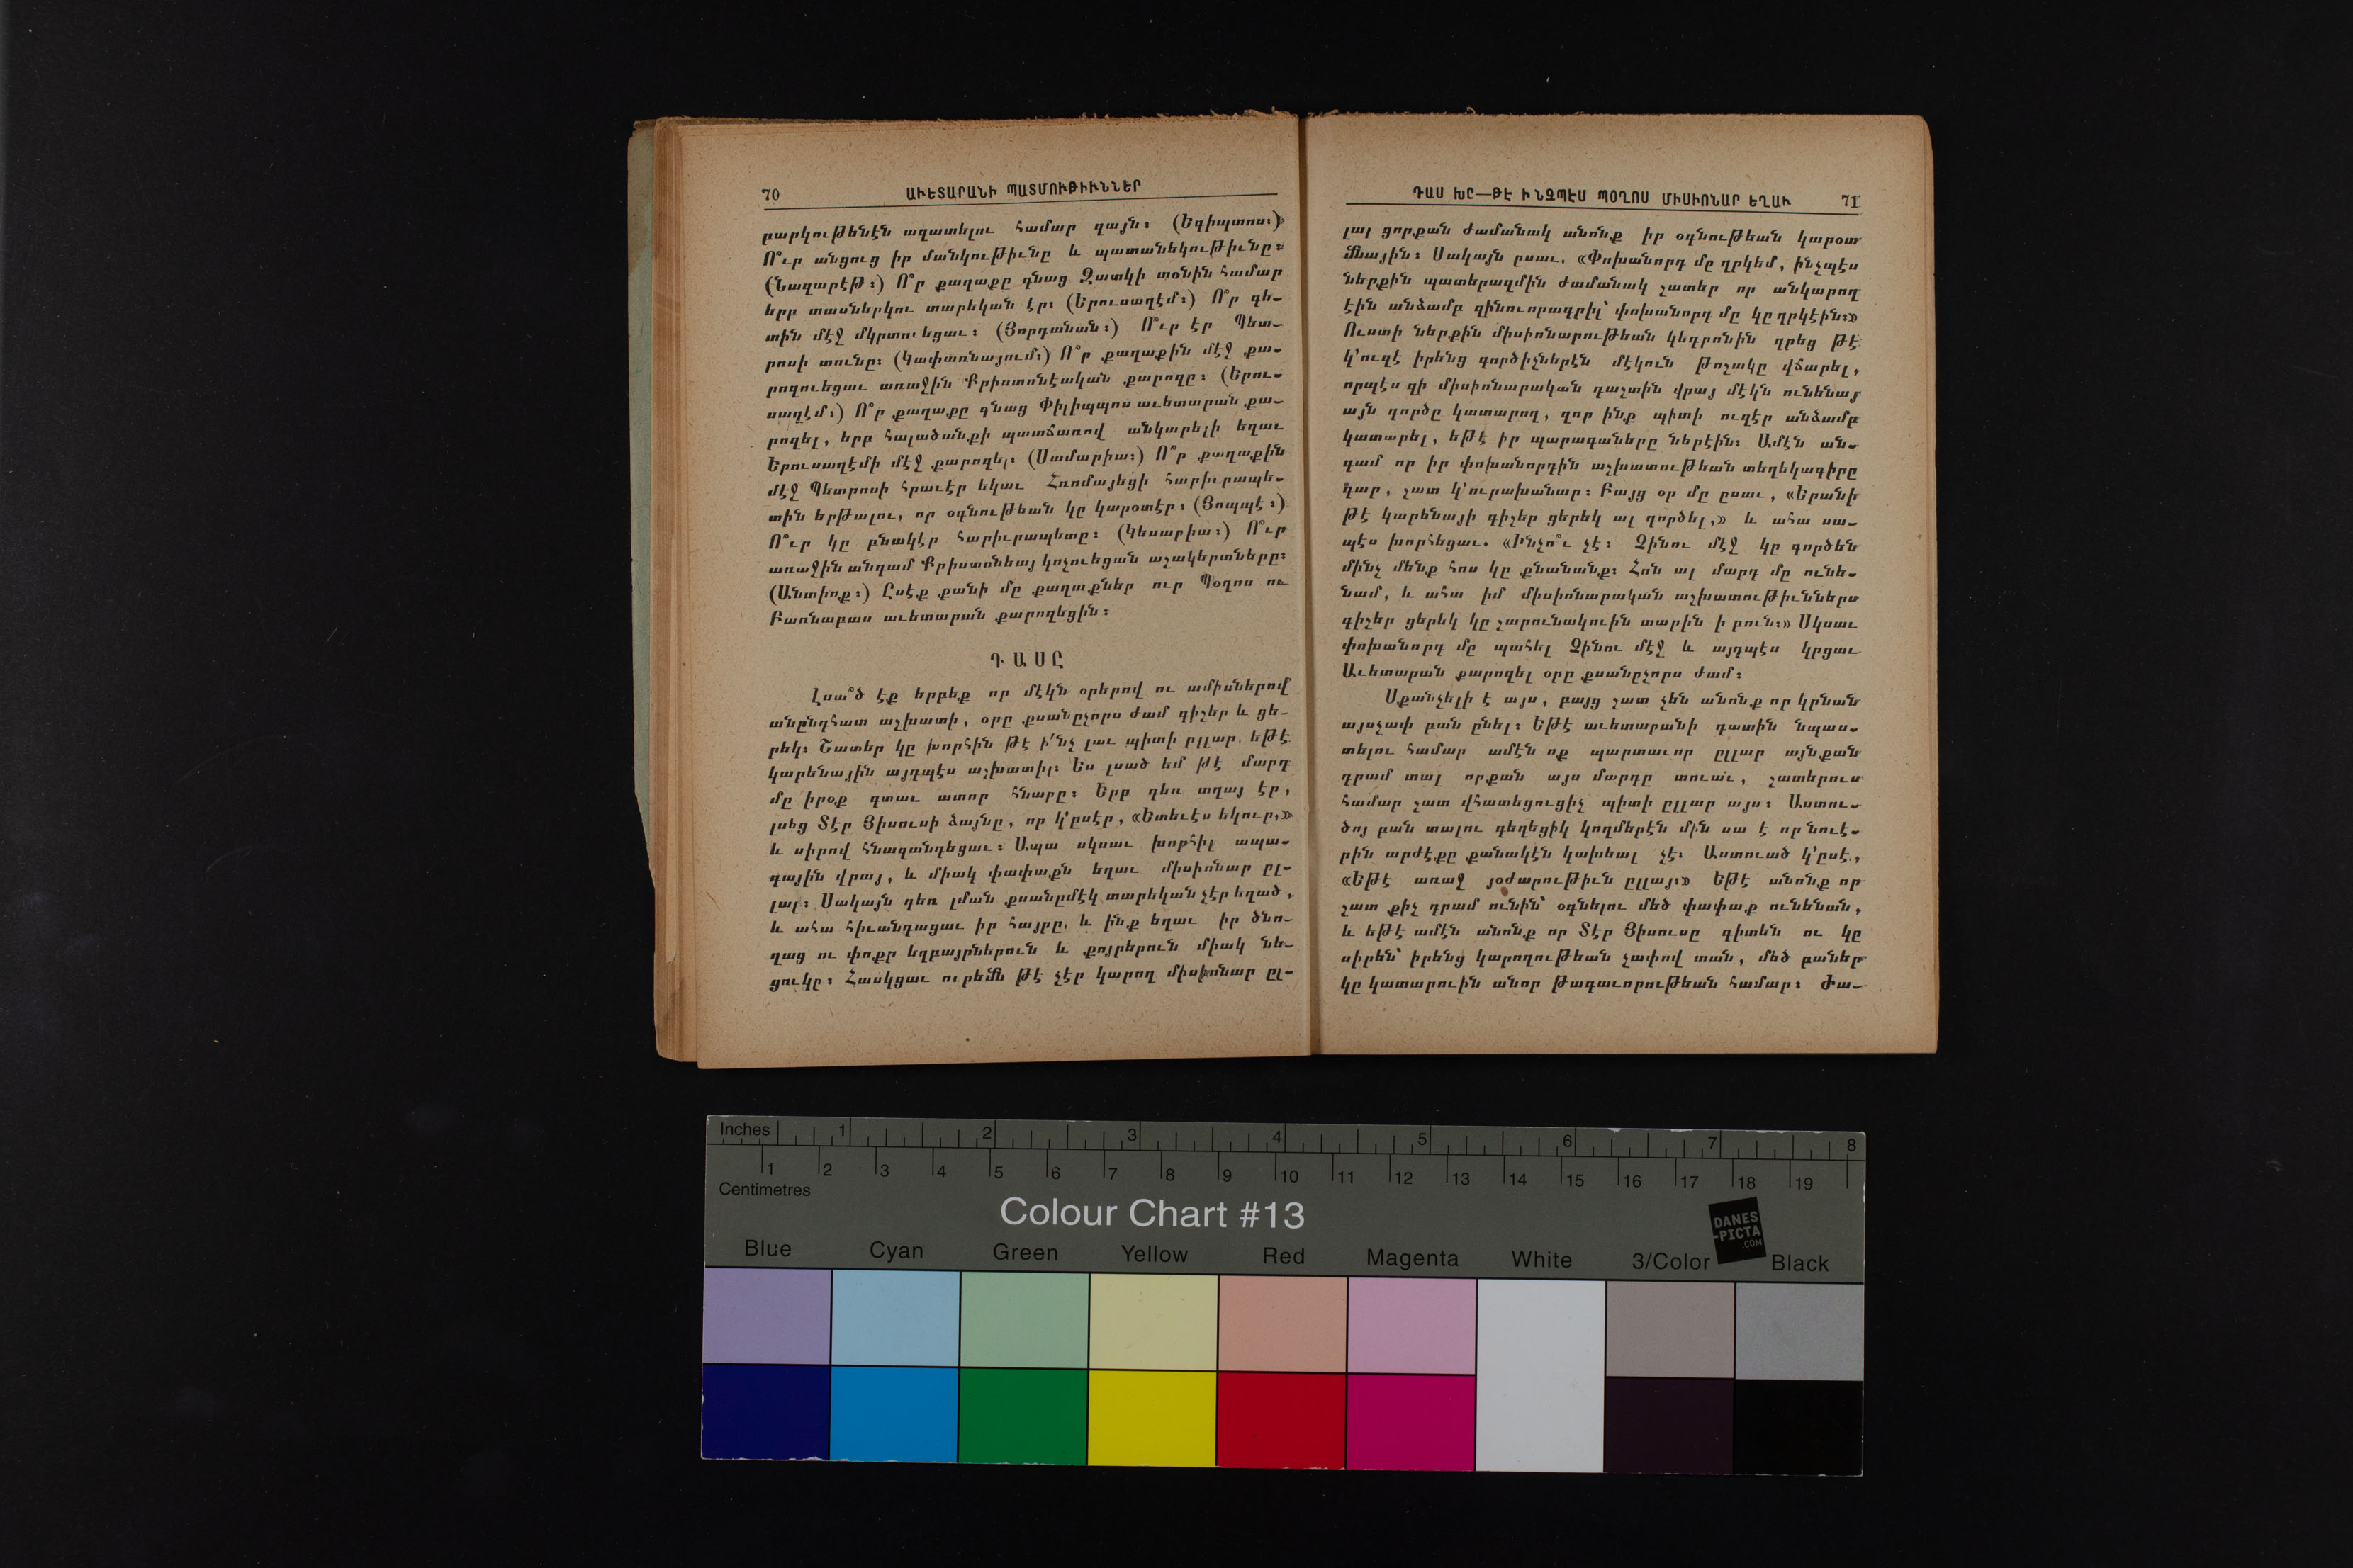 70
ԱՒԵՏԱՐԱՆԻ ՊԱՏՄՈՒԹԻՒՆՆԵՐ
բարկութենէն ազատելու համար զայն։ (Եգիպտոս։)
Ո՞ւր անցուց իր մանկութիւնը և պատանեկութիւնը։
(Նազարէթ։) Ո՞ր քաղաքը գնաց Զատկի տօնին համար
երբ տասներկու տարեկան էր։ (Երուսաղէմ։) Ո՞ր գե-
տին մէջ մկրտուեցաւ։ (Յորդանան։) Ո՞ւր էր Պետ-
րոսի տունը։ (Կափառնայում։) Ո՞ր քաղաքին մէջ քա-
րոզուեցաւ առաջին Քրիստոնէական քարոզը։ (Երու-
սաղէմ։) Ո՞ր քաղաքը գնաց Փիլիպպոս աւետարան քա-
րոզել, երբ հալածանքի պատճառով անկարելի եղաւ
Երուսաղէմի մէջ քարոզել։ (Սամարիա։) Ո՞ր քաղաքին
մէջ Պետրոսի հրաւէր եկաւ Հռոմայեցի հարիւրապե-
տին երթալու, որ օգնութեան կը կարօտէր։ (Յոպպէ։)
Ո՞ւր կը բնակէր հարիւրապետը։ (Կեսարիա։) Ո՞ւր
առաջին անգամ Քրիստոնեայ կոչուեցան աշակերտները։
(Անտիոք։) Ըսէք քանի մը քաղաքներ ուր Պօղոս ու
Բառնաբաս աւետարան քարոզեցին։
ԴԱՍԸ
Լսա՞ծ էք երբեք որ մէկն օրերով ու ամիսներով
անընդհատ աշխատի, օրը քսանըչորս ժամ գիշեր և ցե-
րեկ։ Շատեր կը խորհին թէ ի՛նչ լաւ պիտի ըլլար, եթէ
կարենային այդպէս աշխատիլ։ Ես լսած եմ թէ մարդ
մը իրօք գտաւ ատոր հնարը։ Երբ դեռ տղայ էր,
լսեց Տէր Յիսուսի ձայնը, որ կ'ըսէր, «Ետեւէս եկուր,»
և սիրով հնազանդեցաւ։ Ապա սկսաւ խորհիլ ապա-
գային վրայ, և միակ փափաքն եղաւ միսիոնար ըլ-
լալ։ Սակայն դեռ լման քսանըմէկ տարեկան չէր եղած,
և ահա հիւանդացաւ իր հայրը, և ինք եղաւ իր ծնո-
ղաց ու փոքր եղբայրներուն և քոյրերուն միակ նե-
ցուկը։ Հասկցաւ ուրեմն թէ չէր կարող միսիոնար ըլ-
ԴԱՍ ԽԸ—ԹԷ ԻՆՉՊԷՍ ՊՕՂՈՍ ՄԻՍԻՈՆԱՐ ԵՂԱՒ
71
լալ ցորքան ժամանակ անոնք իր օգնութեան կարօտ
մնային։ Սակայն ըսաւ. «Փոխանորդ մը ղրկեմ, ինչպէս
ներքին պատերազմին ժամանակ շատեր որ անկարող
էին անձամբ զինուորագրիլ՝ փոխանորդ մը կը ղրկէին։»
Ուստի ներքին միսիոնարութեան կեդրոնին գրեց թէ
կ'ուզէ իրենց գործիչներէն մէկուն թոշակը վճարել,
որպէս զի միսիոնարական դաշտին վրայ մէկն ունենայ
այն գործը կատարող, զոր ինք պիտի ուզէր անձամբ
կատարել, եթէ իր պարագաները ներէին։ Ամէն ան-
գամ որ իր փոխանորդին աշխատութեան տեղեկագիրը
գար, շատ կ'ուրախանար։ Բայց օր մը ըսաւ, «Երանի
թէ կարենայի գիշեր ցերեկ ալ գործել,» և ահա սա-
պէս խորհեցաւ. «Ինչո՞ւ չէ։ Չինու մէջ կը գործեն
մինչ մենք հոս կը քնանանք։ Հոն ալ մարդ մը ունե-
նամ, և ահա իմ միսիոնարական աշխատութիւններս
գիշեր ցերեկ կը շարունակուին տարին ի բուն։» Սկսաւ
փոխանորդ մը պահել Չինու մէջ և այդպէս կրցաւ
Աւետարան քարոզել օրը քսանըչորս ժամ։
Սքանչելի է այս, բայց շատ չեն անոնք որ կրնան
այսչափ բան ընել։ Եթէ աւետարանի դատին նպաս-
տելու համար ամէն ոք պարտաւոր ըլլար այնքան
դրամ տալ որքան այս մարդը տուաւ, շատերուս
համար շատ վհատեցուցիչ պիտի ըլլար այս։ Աստու-
ծոյ բան տալու գեղեցիկ կողմերէն մին սա է որ նուէ-
րին արժէքը քանակէն կախեալ չէ։ Աստուած կ'ըսէ,
«Եթէ առաջ յօժարութիւն ըլլայ։» Եթէ անոնք որ
շատ քիչ դրամ ունին՝ օգնելու մեծ փափաք ունենան,
և եթէ ամէն անոնք որ Տէր Յիսուսը գիտեն ու կը
սիրեն՝ իրենց կարողութեան չափով տան, մեծ բաներ
կը կատարուին անոր թագաւորութեան համար։ Ժա-
Inches 1 2 3 4 5 6 7 8
1 2 3 4 5 6 7 8 9 10 11 12 13 14 15 16 17 18 19
Centimetres
Colour Chart #13
DANES
-PICTA
.COM
Blue Cyan Green Yellow Red Magenta White 3/Color Black